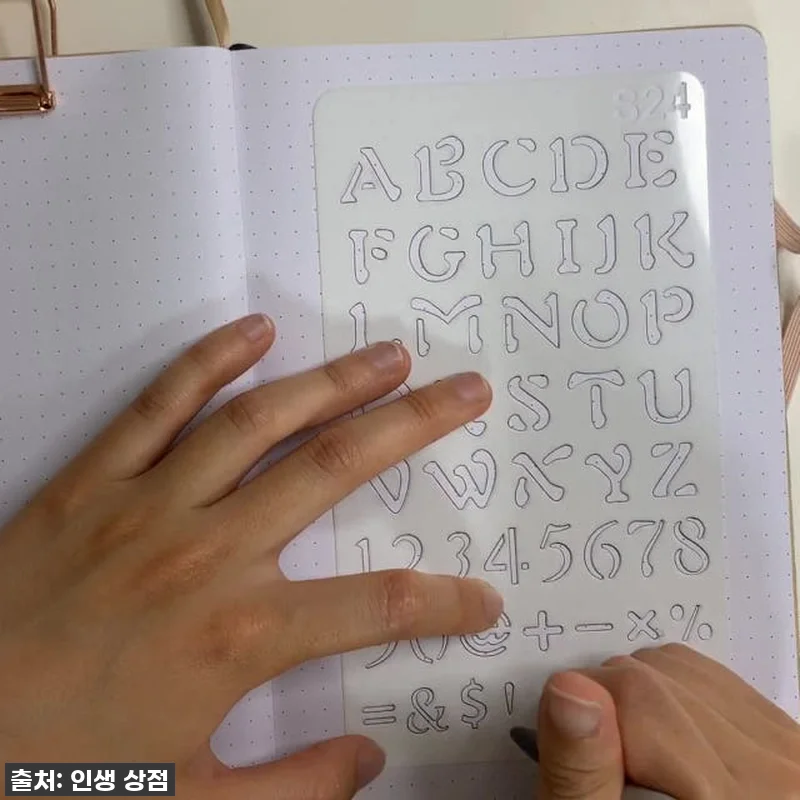 S24
ABCDE
FGHIJK
LMNOP
STU
VWXYZ
12345678
@+−×%
=&$!
출처: 인생 상점